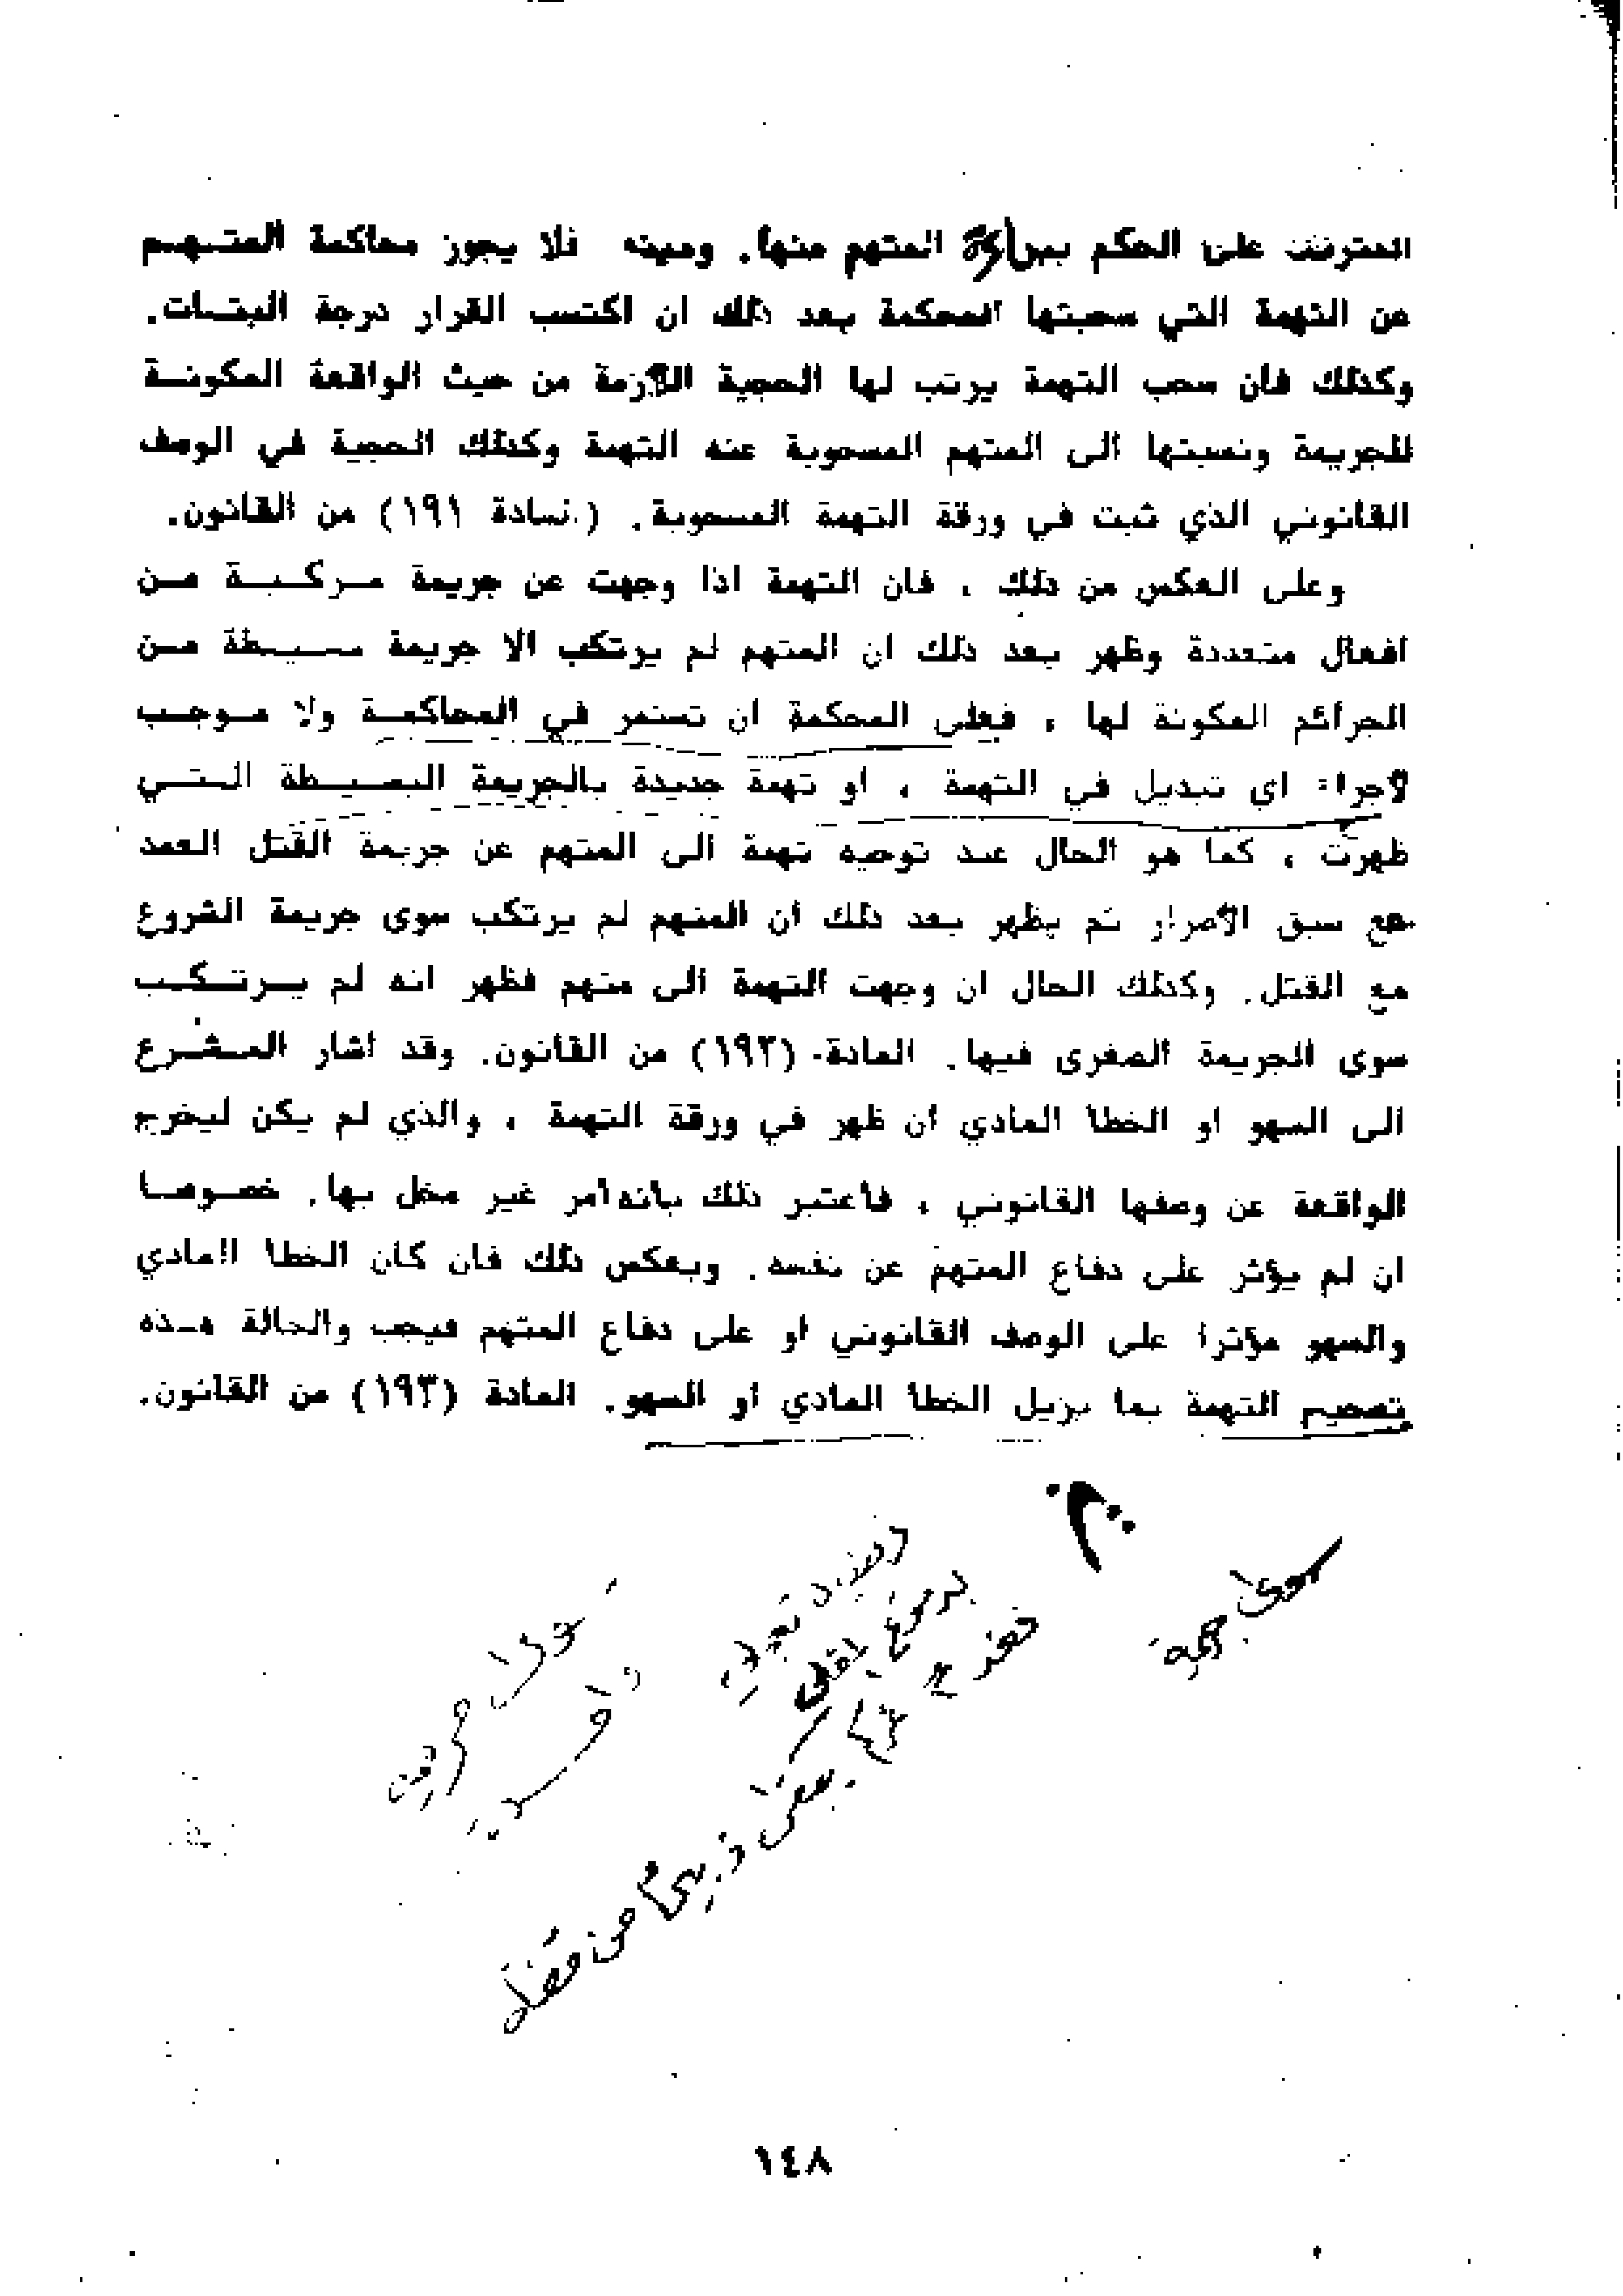 المترتبة على الحكم ببراءة المتهم منها. وحينه فلا يجوز محاكمة المتـهـم
عن التهمة التي سحبتها المحكمة بعد ذلك ان اكتسب القرار درجة البتـات.
وكذلك فان سحب التهمة يرتب لها الحجية اللازمة من حيث الواقعة المكونـة
للجريمة ونسبتها الى المتهم المسحوبة عنه التهمة وكذلك الحجية في الوصف
القانوني الذي ثبت في ورقة التهمة المسحوبة. (المادة ١٩١) من القانون.
وعلى العكس من ذلك ، فان التهمة اذا وجهت عن جريمة مـركـبـة مـن
افعال متعددة وظهر بعد ذلك ان المتهم لم يرتكب الا جريمة بسـيـطة مـن
الجرائم المكونة لها ، فعلى المحكمة ان تستمر في المحاكمـة ولا مـوجـب
لاجراء اي تبديل في التهمة ، او تهمة جديدة بالجريمة البسـيـطة الـتـي
ظهرت ، كما هو الحال عند توجيه تهمة الى المتهم عن جريمة القتل العمد
مع سبق الاصرار ثم يظهر بعد ذلك ان المتهم لم يرتكب سوى جريمة الشروع
مع القتل. وكذلك الحال ان وجهت التهمة الى متهم فظهر انه لم يـرتـكـب
سوى الجريمة الصغرى فيها. المادة (١٩٢) من القانون. وقد اشار المـشـرع
الى السهو او الخطا المادي ان ظهر في ورقة التهمة ، والذي لم يكن ليخرج
الواقعة عن وصفها القانوني ، فاعتبر ذلك بانه امر غير مخل بها. خصـوصـا
ان لم يؤثر على دفاع المتهم عن نفسه. وبعكس ذلك فان كان الخطا المادي
والسهو مؤثرا على الوصف القانوني او على دفاع المتهم فيجب والحالة هـذه
تصحيح التهمة بما يزيل الخطا المادي او السهو. المادة (١٩٣) من القانون.
١٤٨